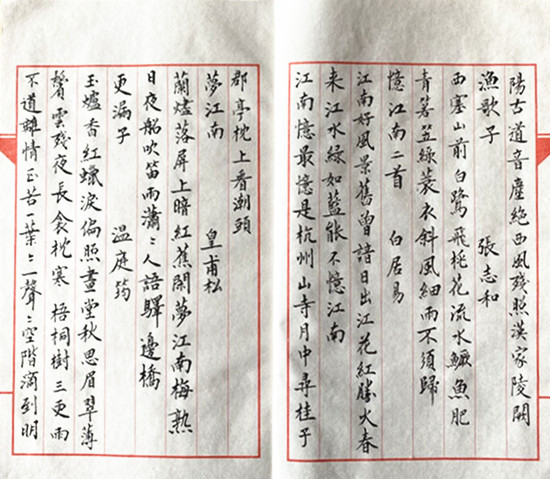 陽古道音塵絶西風殘照漢家陵闕
漁歌子 張志和
西塞山前白鷺飛桃花流水鱖魚肥
青箬笠綠蓑衣斜風細雨不須歸
憶江南二首 白居易
江南好風景舊曾諳日出江花紅勝火春
来江水綠如藍能不憶江南
江南憶最憶是杭州山寺月中尋桂子
郡亭枕上看潮頭
夢江南 皇甫松
蘭燼落屏上暗紅蕉閑夢江南梅熟
日夜船吹笛雨瀟〻人語驛邊橋
更漏子 温庭筠
玉爐香紅蠟淚偏照畫堂秋思眉翠薄
鬢雲殘夜長衾枕寒梧桐樹三更雨
不道離情正苦一葉〻一聲〻空階滴到明